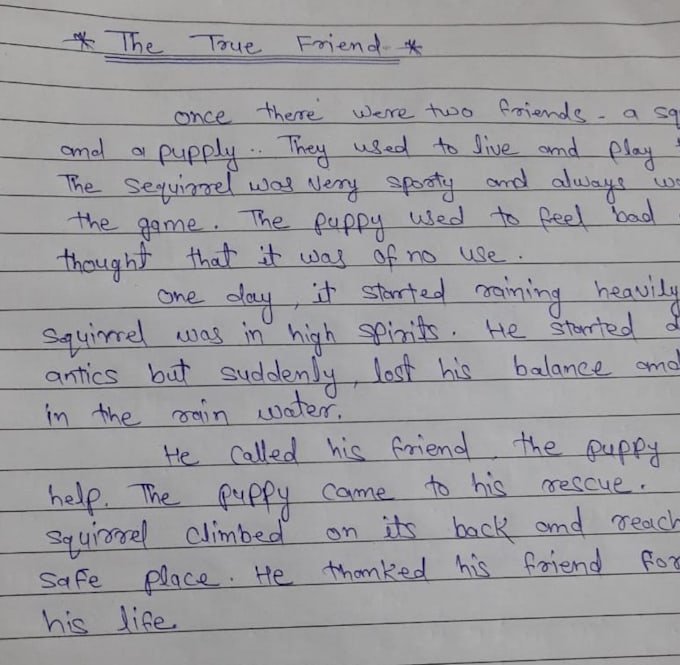 * The True Friend *
once there were two friends - a sq
and a pupply.. They used to live and play
The sequirrel was very sporty and always w
the game. The puppy used to feel bad
thought that it was of no use.
one day, it started raining heavily
squirrel was in high spirits. He started d
antics but suddenly, lost his balance and
in the rain water.
He called his friend, the puppy
help. The puppy came to his rescue.
squirrel climbed on its back and reach
safe place. He thanked his friend for
his life.